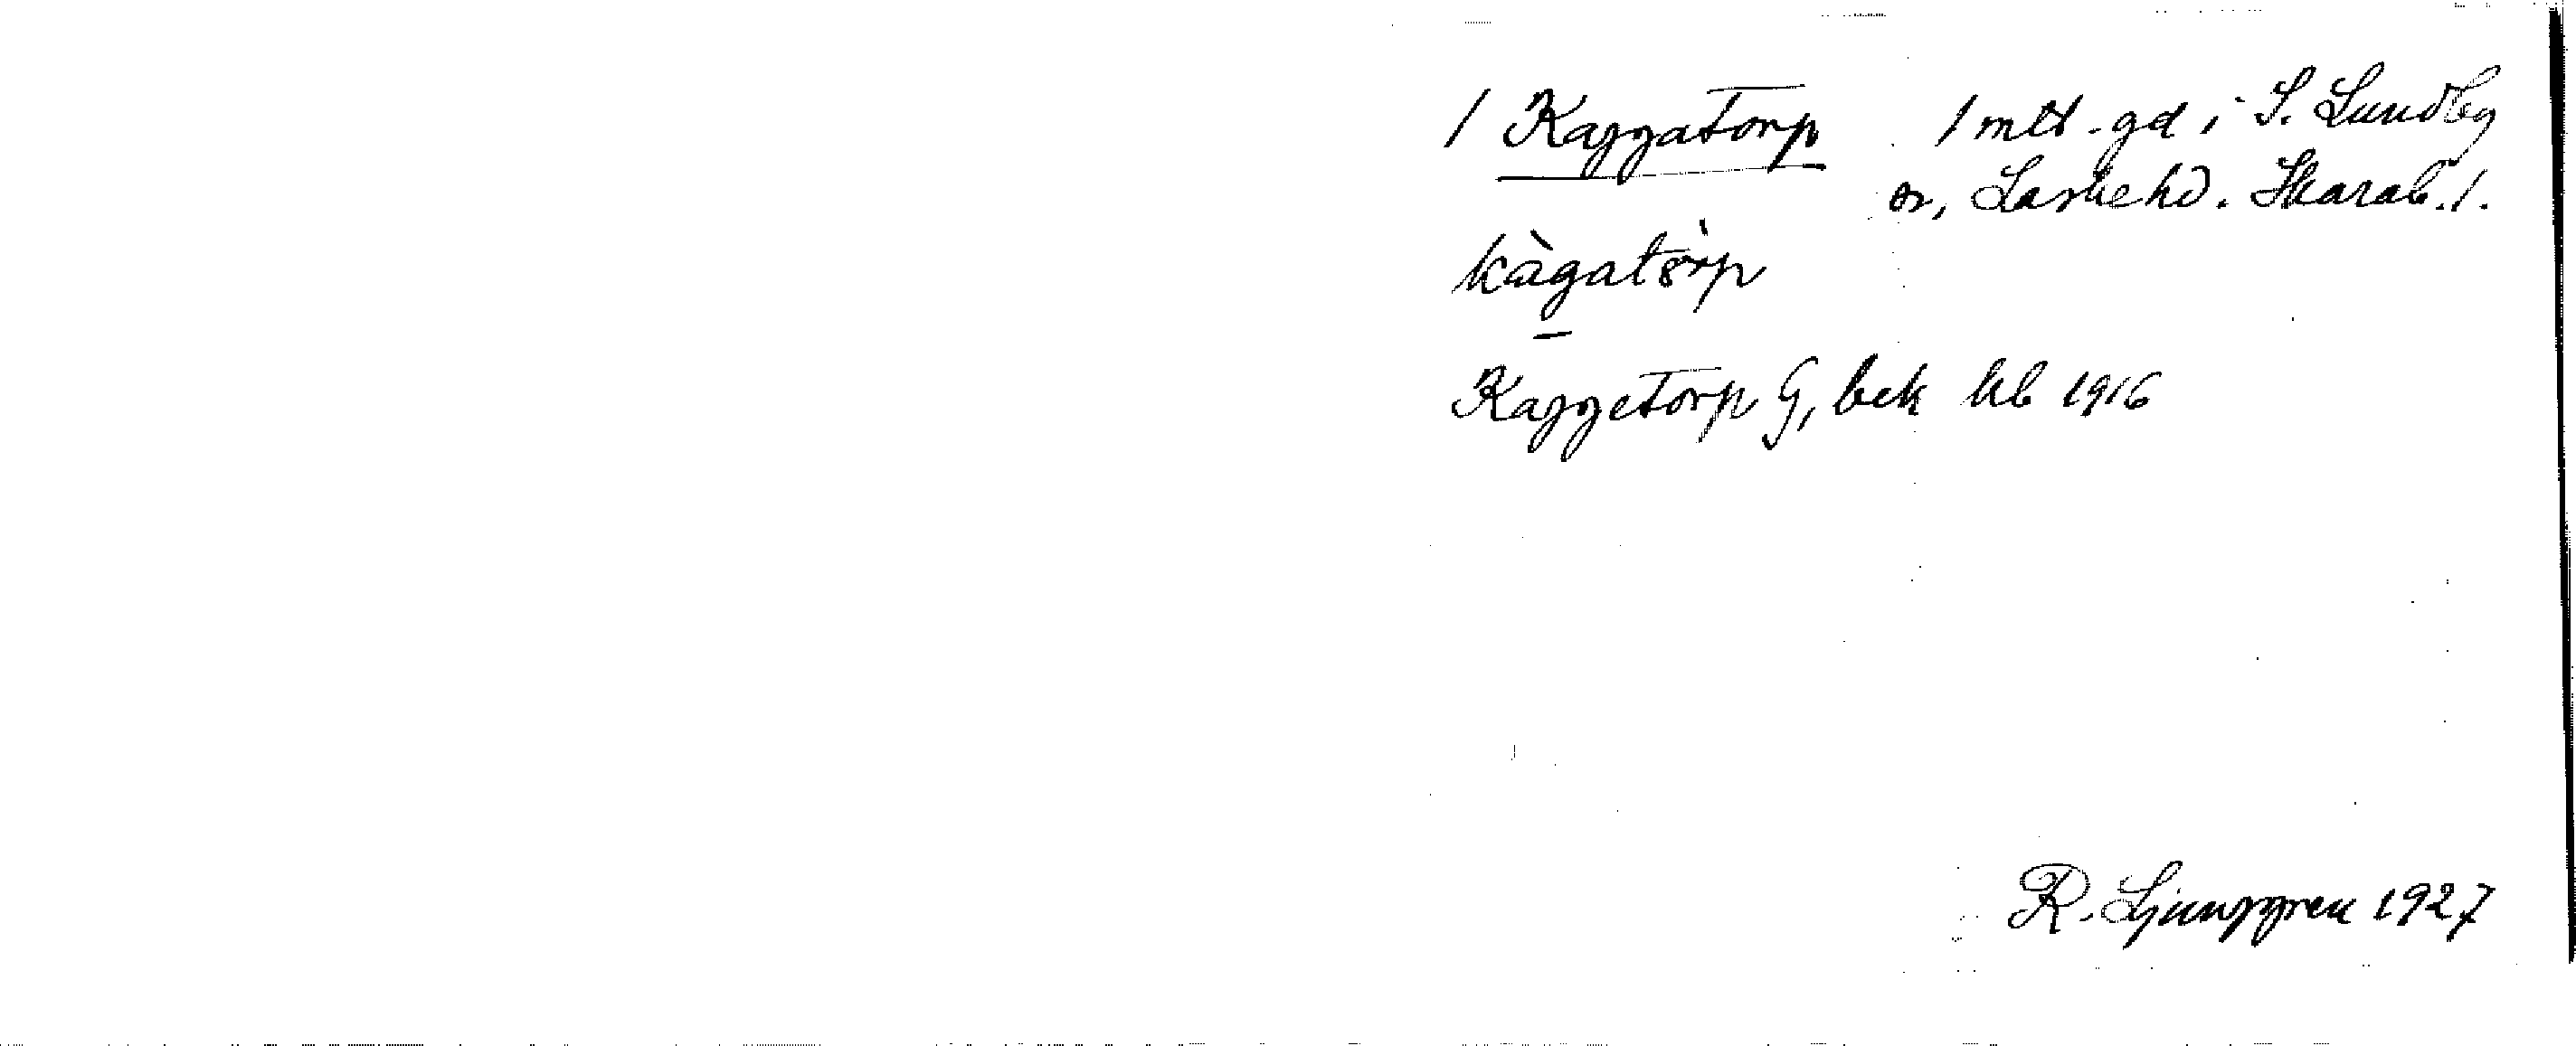 1 Kaggatorp 1 mtl. gd i S. Lundby
sn, Laske hd. Skarab. l.
kàgatòrp
Kaggetorp G, bek kb 1916
R. Ljunggren 1927